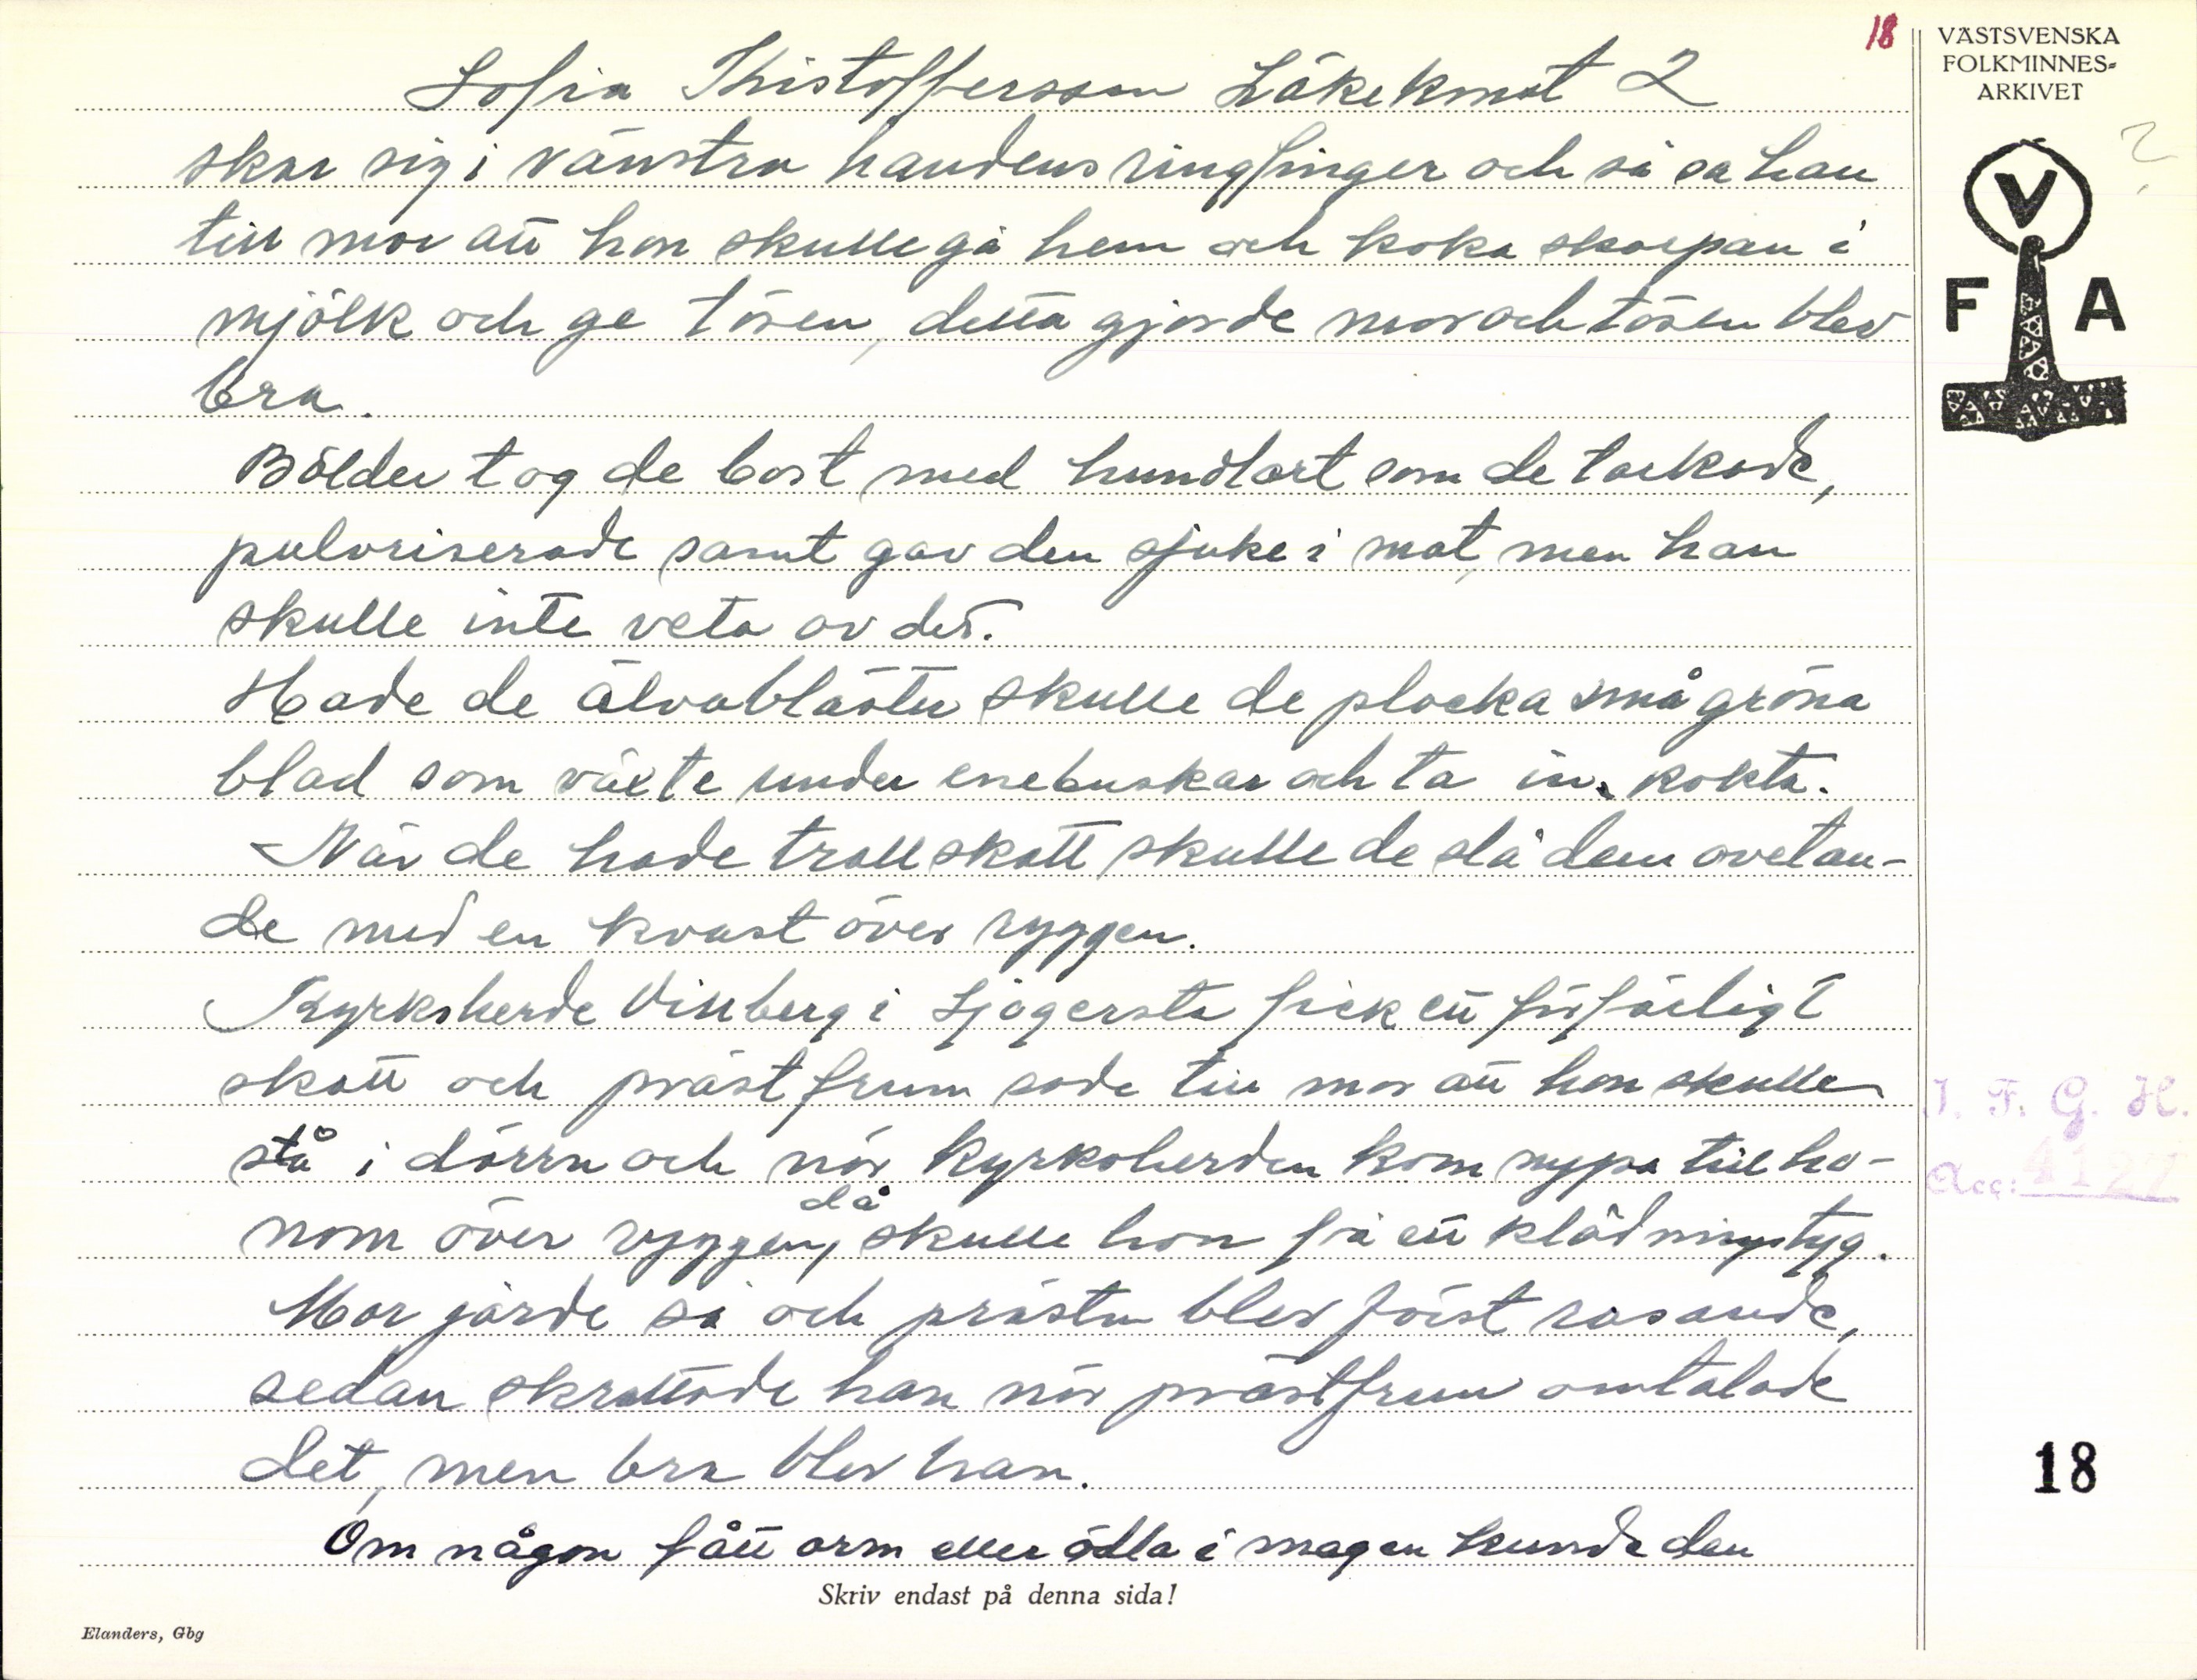 18
VÄSTSVENSKA
FOLKMINNES-
ARKIVET
Sofia Kristoffersson Läkekonst 2
skar sig i vänstra handens ringfinger och så sa han
till mor att hon skulle gå hem och koka skorpan i
mjölk och ge tösen, detta gjorde mor och tösen blev
bra.
Bölder tog de bort med hundlort som de torkade,
pulvriserade samt gav den sjuke i mat, men han
skulle inte veta av det.
Hade de älvablåster skulle de plocka små gröna
blad som växte under enebuskar och ta in kokta.
När de hade trollskott skulle de slå dem ovetan-
de med en kvast över ryggen.
Kyrkoherde Vinberg i Sjogersta fick ett förfärligt
skott och prästfrun sade till mor att hon skulle
stå i dörrn och när kyrkoherden kom nypa till ho-
nom över ryggen, då skulle hon få ett klädningstyg.
Mor jorde så och prästen blev först rasande,
sedan skrattade han när prästfrun omtalade
det, men bra blev han.
Om någon fått orm eller ödla i magen kunde den
Skriv endast på denna sida!
Elanders, Gbg
V
F A
?
I. F. G. H.
Acc: 4127
18